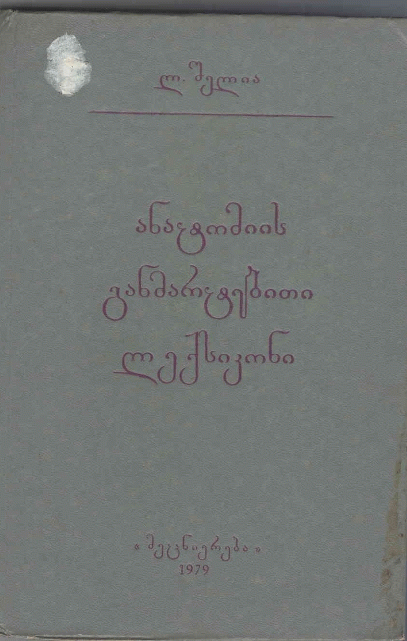 ლ. შელია
ანატომიის
განმარტებითი
ლექსიკონი
„მეცნიერება"
1979